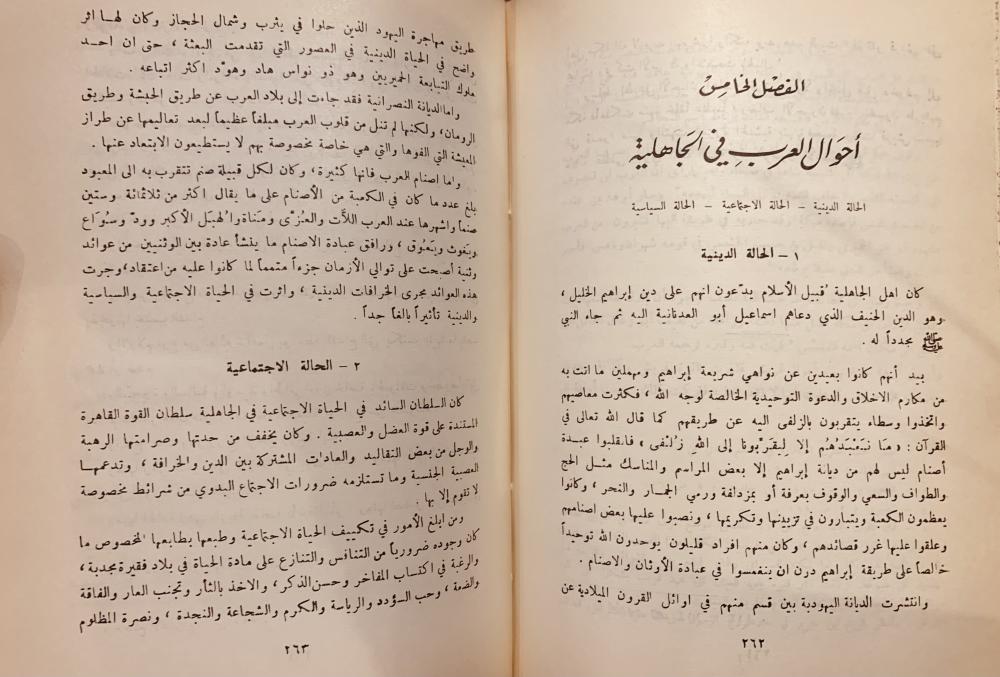 الفصل الخامس
أحوال العرب في الجاهلية
الحالة الدينية – الحالة الاجتماعية – الحالة السياسية
١ – الحالة الدينية
كان اهل الجاهلية قبيل الأسلام يدّعون انهم على دين إبراهيم الخليل ،
وهو الدين الحنيف الذي دعاهم اسماعيل أبو العدنانية اليه ثم جاء النبي
ﷺ مجدداً له .
بيد أنهم كانوا بعيدين عن نواهي شريعة إبراهيم ومهملين ما اتت به
من مكارم الاخلاق والدعوة التوحيدية الخالصة لوجه الله ، فكثرت معاصيهم
واتخذوا وسطاء يتقربون بالزلفى اليه عن طريقهم كما قال الله تعالى في
القرآن : « مَا نَعْبُدُهُم إلا لِيُقَرِّبُونا إلى اللهِ زُلْفى » فانقلبوا عبدة
أصنام ليس لهم من ديانة إبراهيم إلا بعض المراسم والمناسك مثل الحج
والطواف والسعي والوقوف بعرفة أو بمزدلفة ورمي الجمار والنحر ، وكانوا
يعظمون الكعبة ويتبارون في تزيينها وتكريمها ، ونصبوا عليها بعض اصنامهم
وعلقوا عليها غرر قصائدهم ، وكان منهم افراد قليلون يوحدون الله توحيداً
خالصاً على طريقة إبراهيم درن ان ينغمسوا في عبادة الأوثان والاصنام .
وانتشرت الديانة اليهودية بين قسم منهم في اوائل القرون الميلادية عن
٢٦٢
طريق مهاجرة اليهود الذين حلوا في يثرب وشمال الحجاز وكان لهـا اثر
واضح في الحياة الدينية في العصور التي تقدمت البعثة ، حتى ان احـد
ملوك التبابعة الحميريين وهو ذو نواس هاد وهوّد اكثر اتباعه .
واما الديانة النصرانية فقد جاءت إلى بلاد العرب عن طريق الحبشة وطريق
الرومان ، ولكنها لم تنل من قلوب العرب مبلغاً عظيماً لبعد تعاليمها عن طراز
المعيشة التي الفوها والتي هي خاصة مخصوصة بهم لا يستطيعون الابتعاد عنها .
واما اصنام العرب فانها كثيرة ، وكان لكل قبيلة صنم تتقرب به الى المعبود
بلغ عدد ما كان في الكعبة من الأصنام على ما يقال اكثر من ثلاثمائة وستين
صنماً واشهرها عند العرب اللاَّت والعُزّى ومَناة والهبَل الأكبر وودّ وسُوَاع
ويَغوث ويَعُوق ، ورافق عبادة الاصنام ما ينشأ عادة بين الوثنيين من عوائد
وثنية أصبحت على توالي الأزمان جزءاً متمماً لما كانوا عليه من اعتقاد ، وجرت
هذه العوائد مجرى الخرافات الدينية ، واثرت في الحياة الاجتماعية والسياسية
والدينية تأثيراً بالغاً جداً .
٢ – الحالة الاجتماعية
كان السلطان السائد في الحياة الاجتماعية في الجاهلية سلطان القوة القاهرة
المستندة على قوة العضل والعصبية . وكان يخفف من حدتها وصرامتها الرهبة
والوجل من بعض التقاليد والعادات المشتركة بين الدين والخرافة ، وتدعمهـا
العصبية الجنسية وما تستلزمه ضرورات الاجتماع البدوي من شرائط مخصوصة
لا تقوم إلا بها .
ومن ابلغ الأمور في تكييف الحياة الاجتماعية وطبعها بطابعها المخصوص ما
كان وجوده ضرورياً من التنافس والتنازع على مادة الحياة في بلاد فقيرة مجدبة ،
والرغبة في اكتساب المفاخر وحسن الذكر ، والاخذ بالثأر وتجنب العار والفاقة
والضعة ، وحب السؤدد والرياسة والكرم والشجاعة والنجدة ، ونصرة المظلوم
٢٦٣